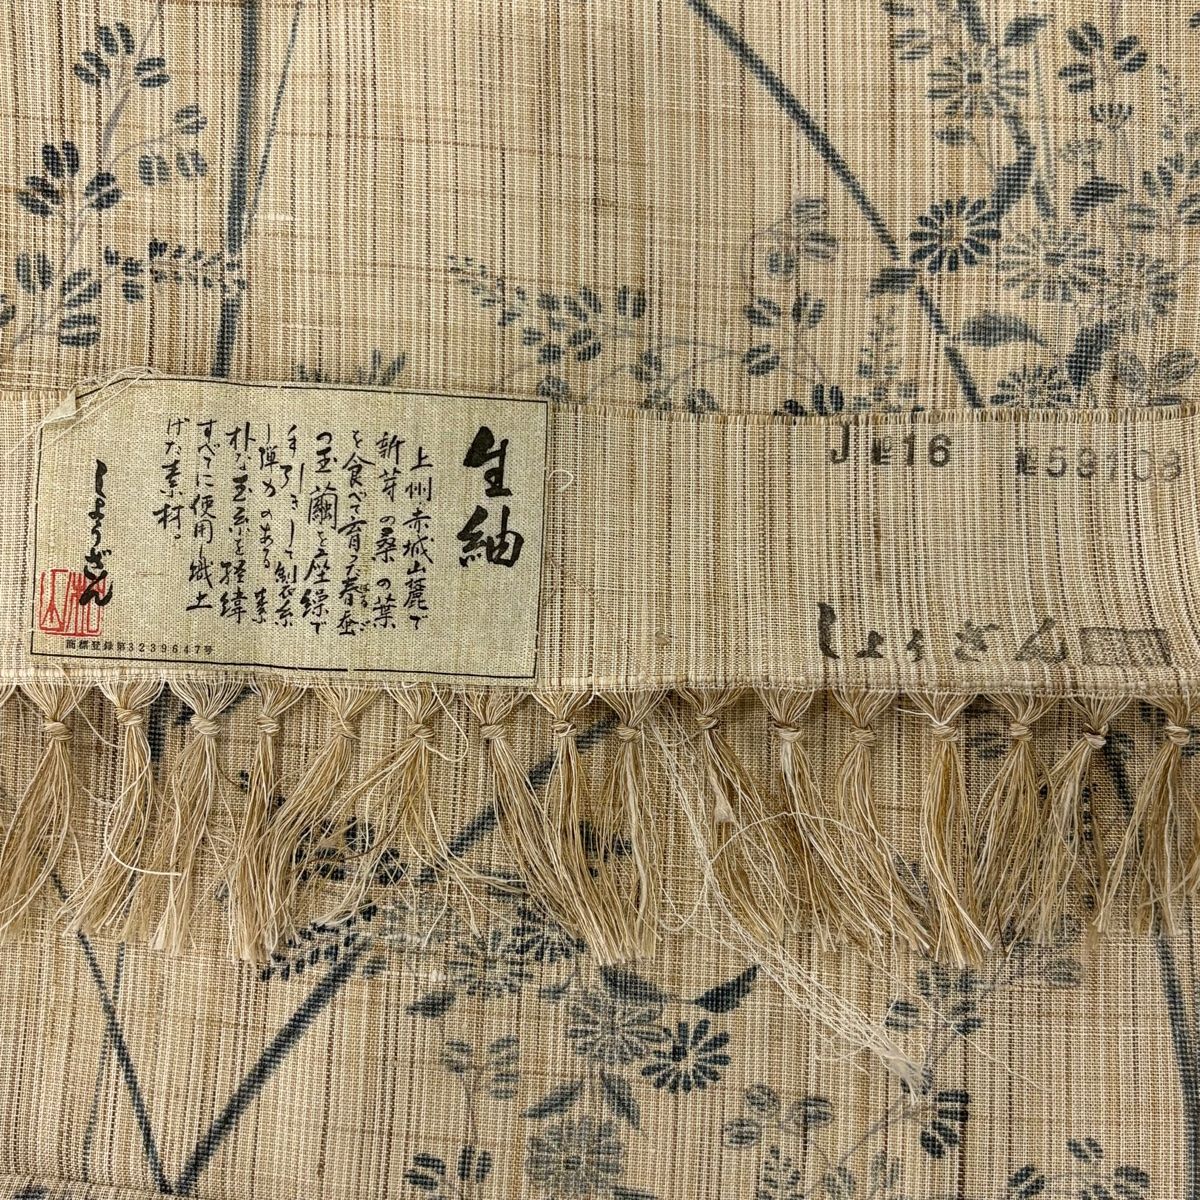 生紬
上州赤城山麓で
新芽の桑の葉
を食べて育った春蚕
の玉繭を座繰で
手引きして製糸
し弾力のある素
朴な玉糸を経緯
すべてに使用し織上
げた素材。
しょうざん
商標登録第3239647号
J №16
№53703
しょうざん